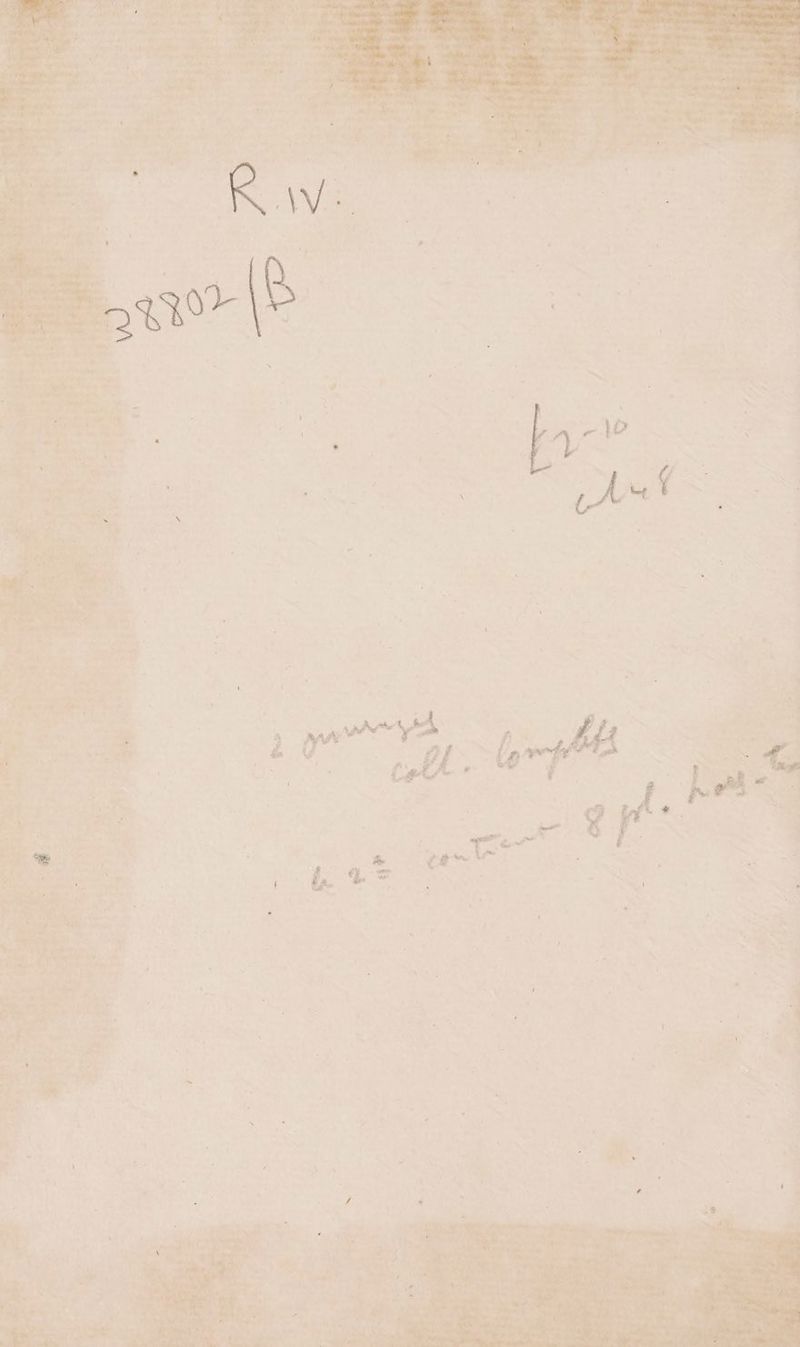 R. IV.
38802/B
£2-10
2 ouvrages
coll. Complets
le 2e contient 8 pl. hors-tex